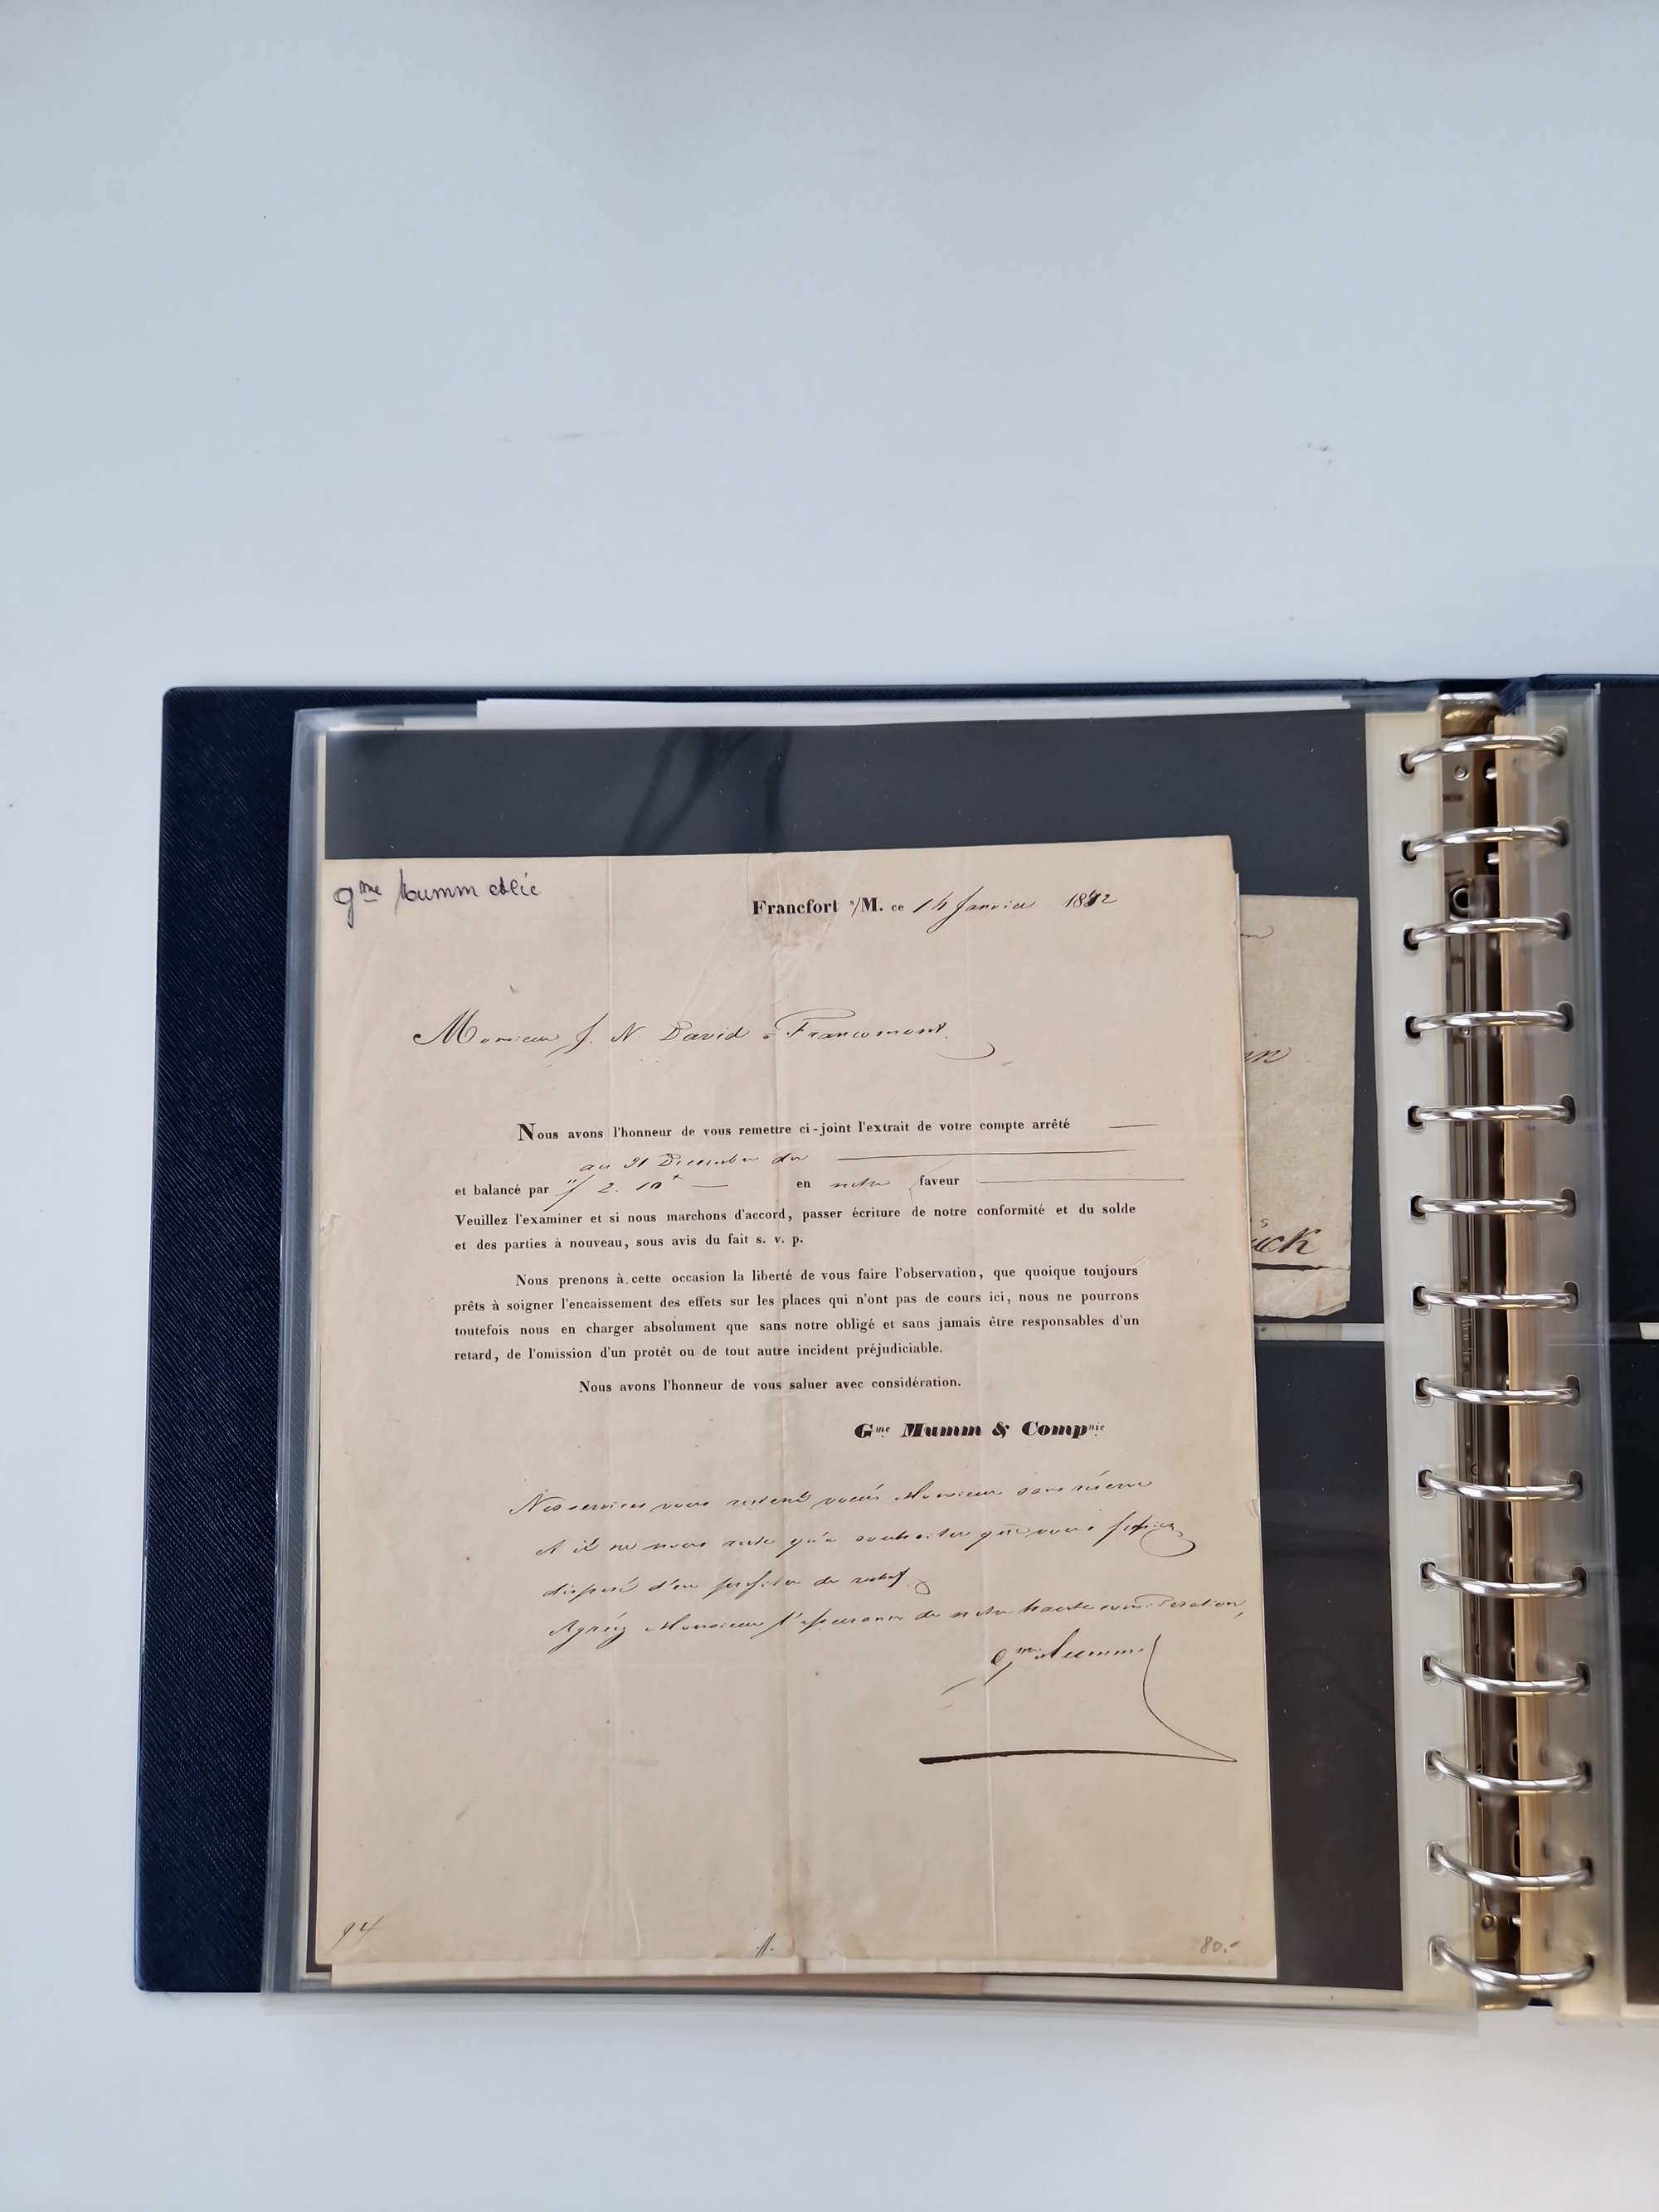 Gme Mumm &Cie
Francfort s/M. ce 14 Janvier 1842
Monsieur J. N. David à Francomont.
Nous avons l'honneur de vous remettre ci-joint l'extrait de votre compte arrêté
au 31 Decembre der
et balancé par f 2. 10 x en notre faveur
Veuillez l'examiner et si nous marchons d'accord, passer écriture de notre conformité et du solde
et des parties à nouveau, sous avis du fait s. v. p.
Nous prenons à cette occasion la liberté de vous faire l'observation, que quoique toujours
prêts à soigner l'encaissement des effets sur les places qui n'ont pas de cours ici, nous ne pourrons
toutefois nous en charger absolument que sans notre obligé et sans jamais être responsables d'un
retard, de l'omission d'un protêt ou de tout autre incident préjudiciable.
Nous avons l'honneur de vous saluer avec considération.
Gme Mumm & Compnie
Nos services vous restent voués Monsieur sans réserve
et il ne nous reste qu'à souhaiter que vous
disposé d'en profiter de
Agréez Monsieur l'assurance de notre haute consideration,
Gme Mumm
94
80.-
ück